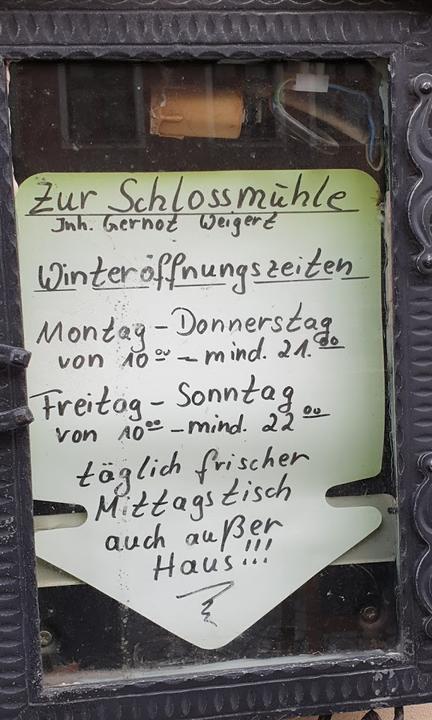 Zur Schlossmühle
Inh. Gernot Weigert
Winteröffnungszeiten
Montag - Donnerstag
von 10ºº - mind. 21.ºº
Freitag - Sonntag
von 10ºº - mind. 22ºº
täglich frischer
Mittagstisch
auch außer
Haus!!!